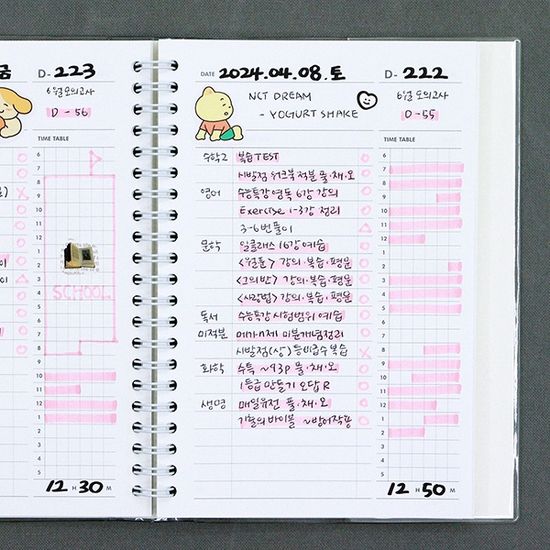 금
D-223
6월 모의고사
D-56
TIME TABLE
6
7
8
9
10
11
12
1
2
3
SCHOOL
8
9
10
11
12
1
2
3
4
5
12 H 30 M
DATE 2024.04.08.토
D-222
NCT DREAM
- YOGURT SHAKE
6월 모의고사
D-55
TIME TABLE
수학2 복습TEST
시발점 워크북 적분 풀·채·오
영어 수능특강영독 6강 강의
Exercise 1-3강 정리
3-6번풀이
문학 일클래스 16강 예습
강의·복습·평문
<그의 반> 강의·복습·평문
<사랑법> 강의·복습·평문
독서 수능특강 시험범위 예습
미적분 미분개념정리
시발점(상) 등비급수 복습
화학 수특 ~93p 풀·채·오
1등급 만들기 오답 R
생명 매일유전 풀·채·오
기출의 바이블 ~방어작용
6
7
8
9
10
11
12
1
2
3
4
5
6
7
8
9
10
11
12
1
2
3
4
5
12 H 50 M